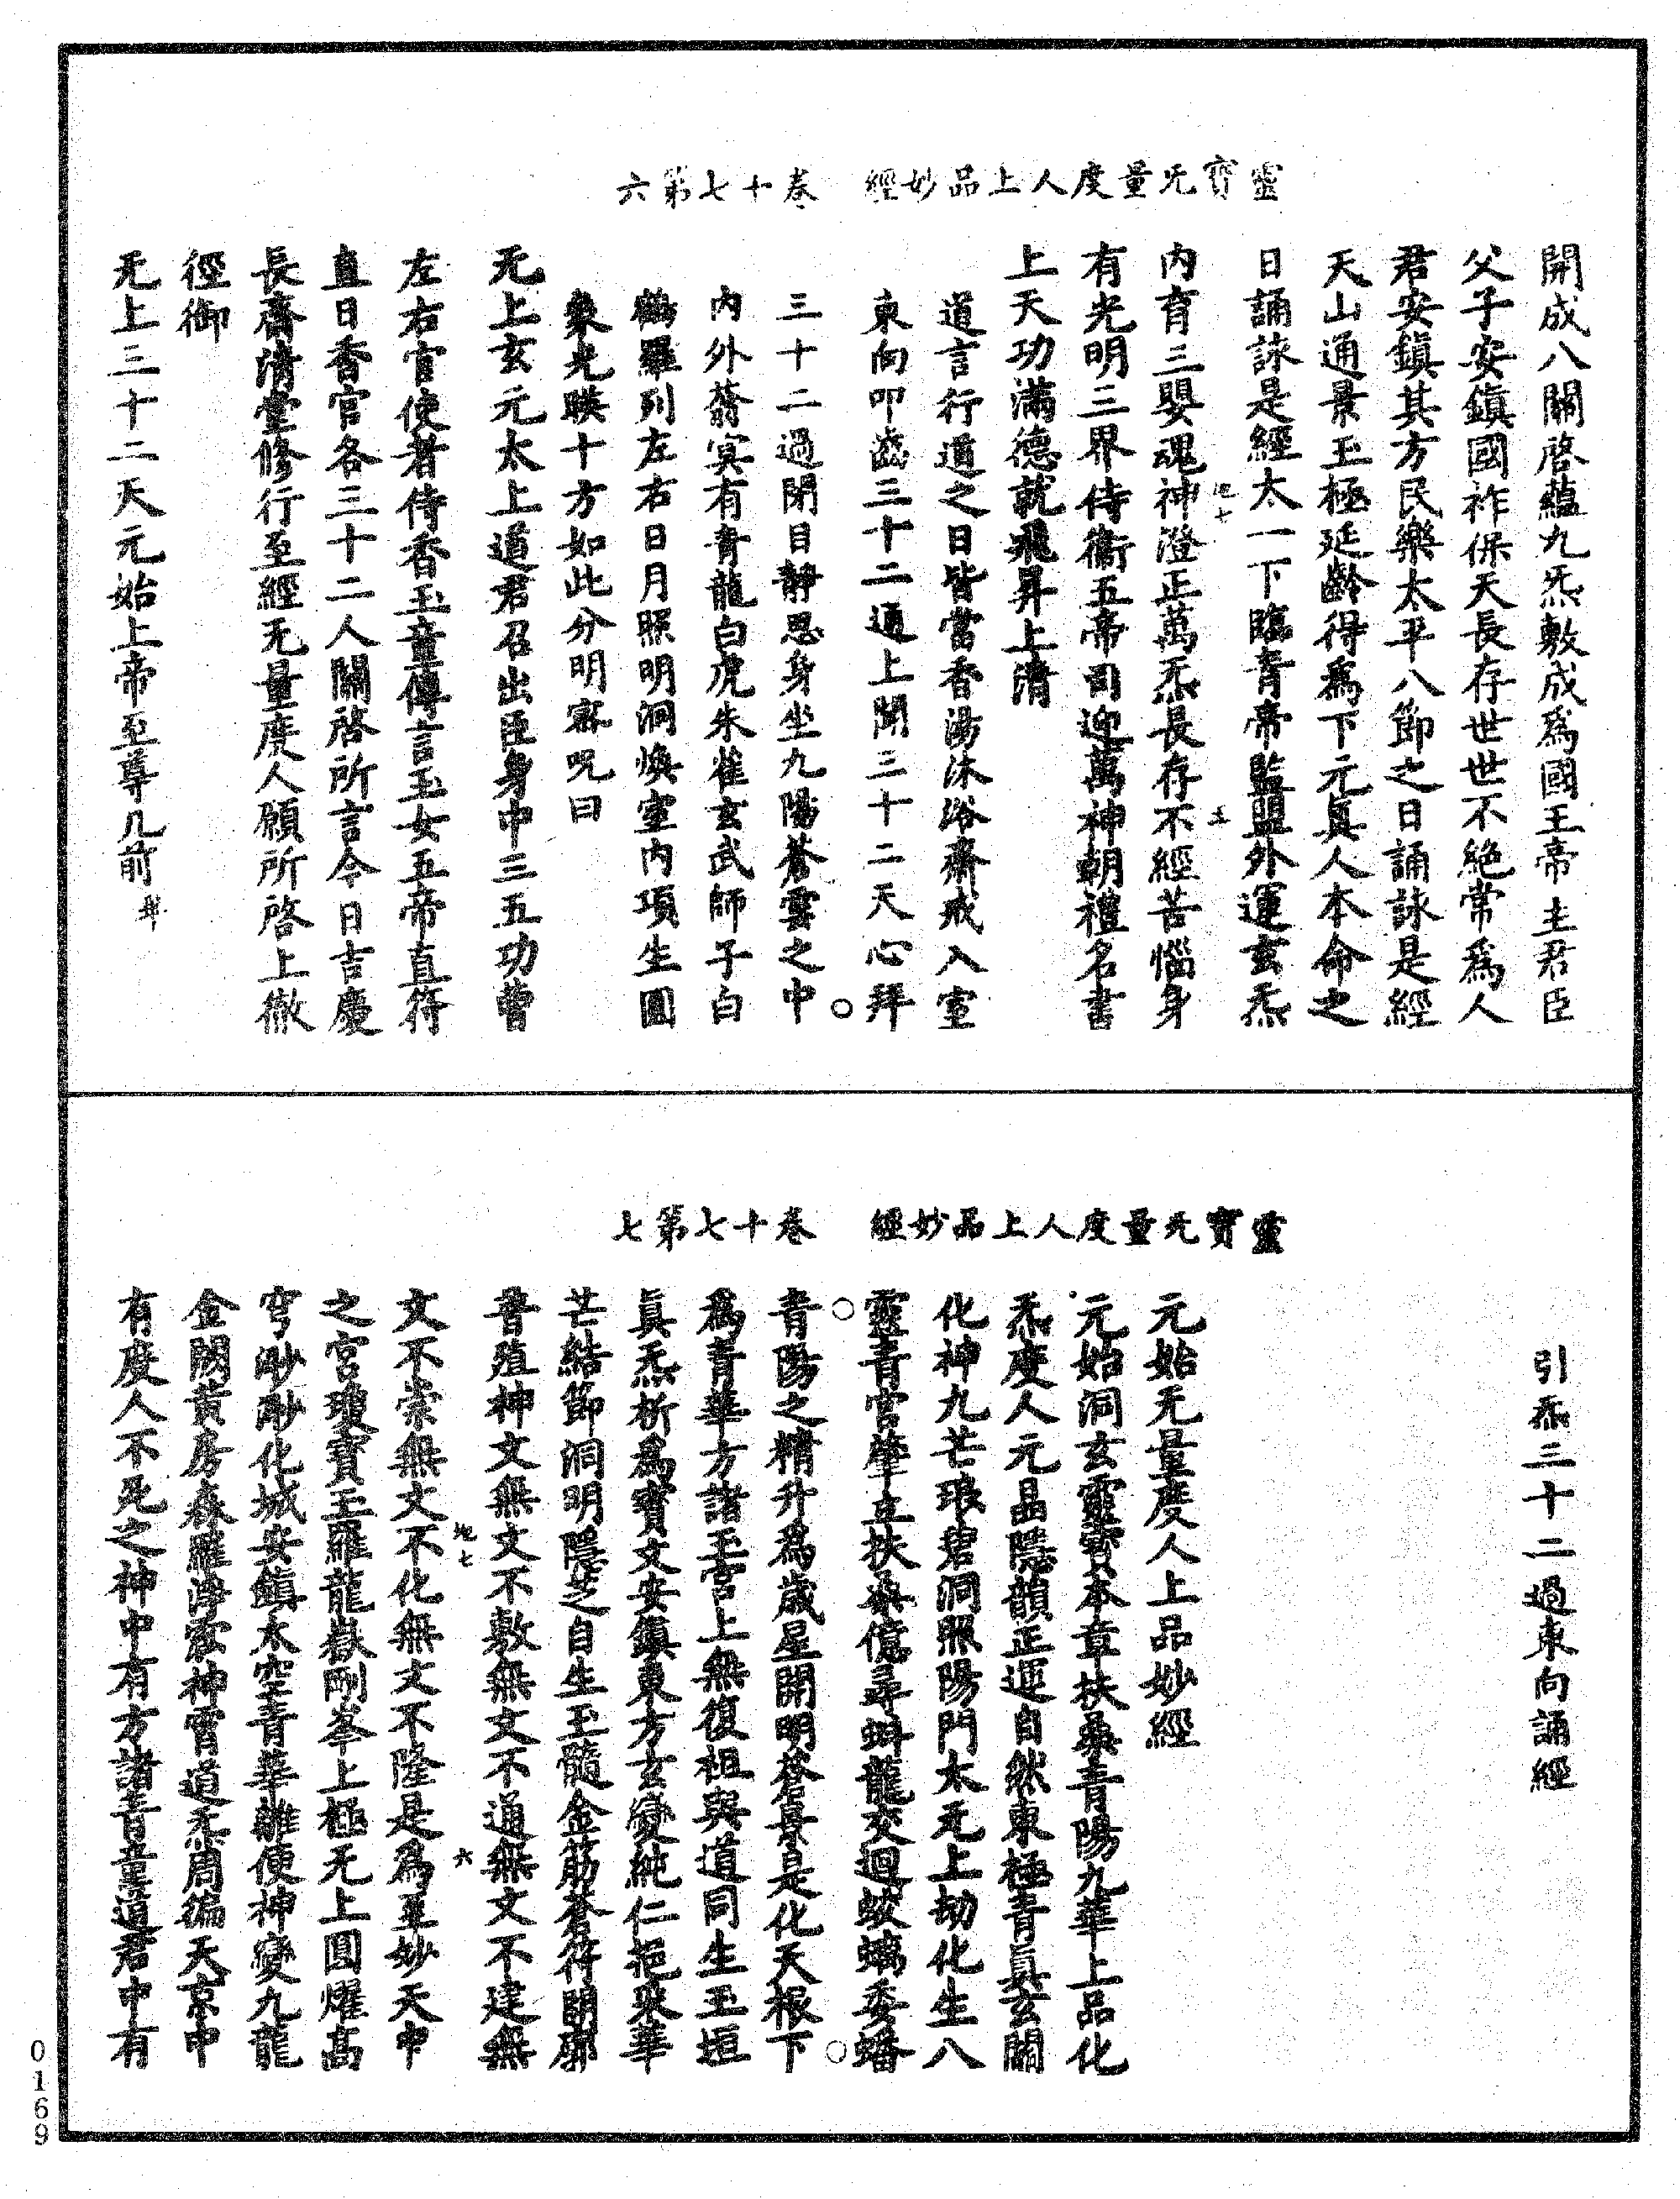 靈寶无量度人上品妙經 卷十七第六
開成八關啓蘊九炁敷成爲國王帝主君臣
父子安鎮國祚保天長存世世不絕常爲人
君安鎮其方民樂太平八節之日誦詠是經
天山通景玉極延齡得爲下元真人本命之
日誦詠是經太一下臨青帝監盟外運玄炁
内育三嬰魂神澄正萬炁長存不經苦惱身
有光明三界侍衞五帝司迎萬神朝禮名書
上天功滿德就飛昇上清
道言行道之日皆當香湯沐浴齋戒入室
東向叩齒三十二通上聞三十二天心拜
三十二過閉目靜思身坐九陽蒼雲之中
内外蓊冥有青龍白虎朱雀玄武師子白
鶴羅列左右日月照明洞煥室内項生圓
象光映十方如此分明密呪曰
无上玄元太上道君召出臣身中三五功曹
左右官使者侍香玉童傳言玉女五帝直符
直日香官各三十二人關啓所言今日吉慶
長齋清堂修行至經无量度人願所啓上徹
徑御
无上三十二天元始上帝至尊几前
地七
五
靈寶无量度人上品妙經 卷十七第七
引炁三十二過東向誦經
元始无量度人上品妙經
元始洞玄靈寶本章扶桑青陽九華上品化
炁度人元晶隱韻正運自然東極青真玄關
化神九芒琅碧洞照陽門太无上劫化生八
靈青宮肇立扶桑億尋蚪龍交迴蛟螭委蟠
青陽之精升爲歲星開明蒼景是化天根下
爲青華方諸玉宮上無復祖與道同生玉垣
真炁析爲寶文安鎮東方玄變純仁挹映華
芒結節洞明隱芝自生玉髓金筋蒼符開廓
普殖神文無文不敷無文不通無文不建無
文不崇無文不化無文不隆是爲至妙天中
之宮瓊寶玉羅龍嶽剛峯上極无上圓燿高
穹眇眇化城安鎮太空青華離便神變九龍
金闕黃房森羅淨泓神霄道炁周徧天京中
有度人不死之神中有方諸青童道君中有
地七
六
0169